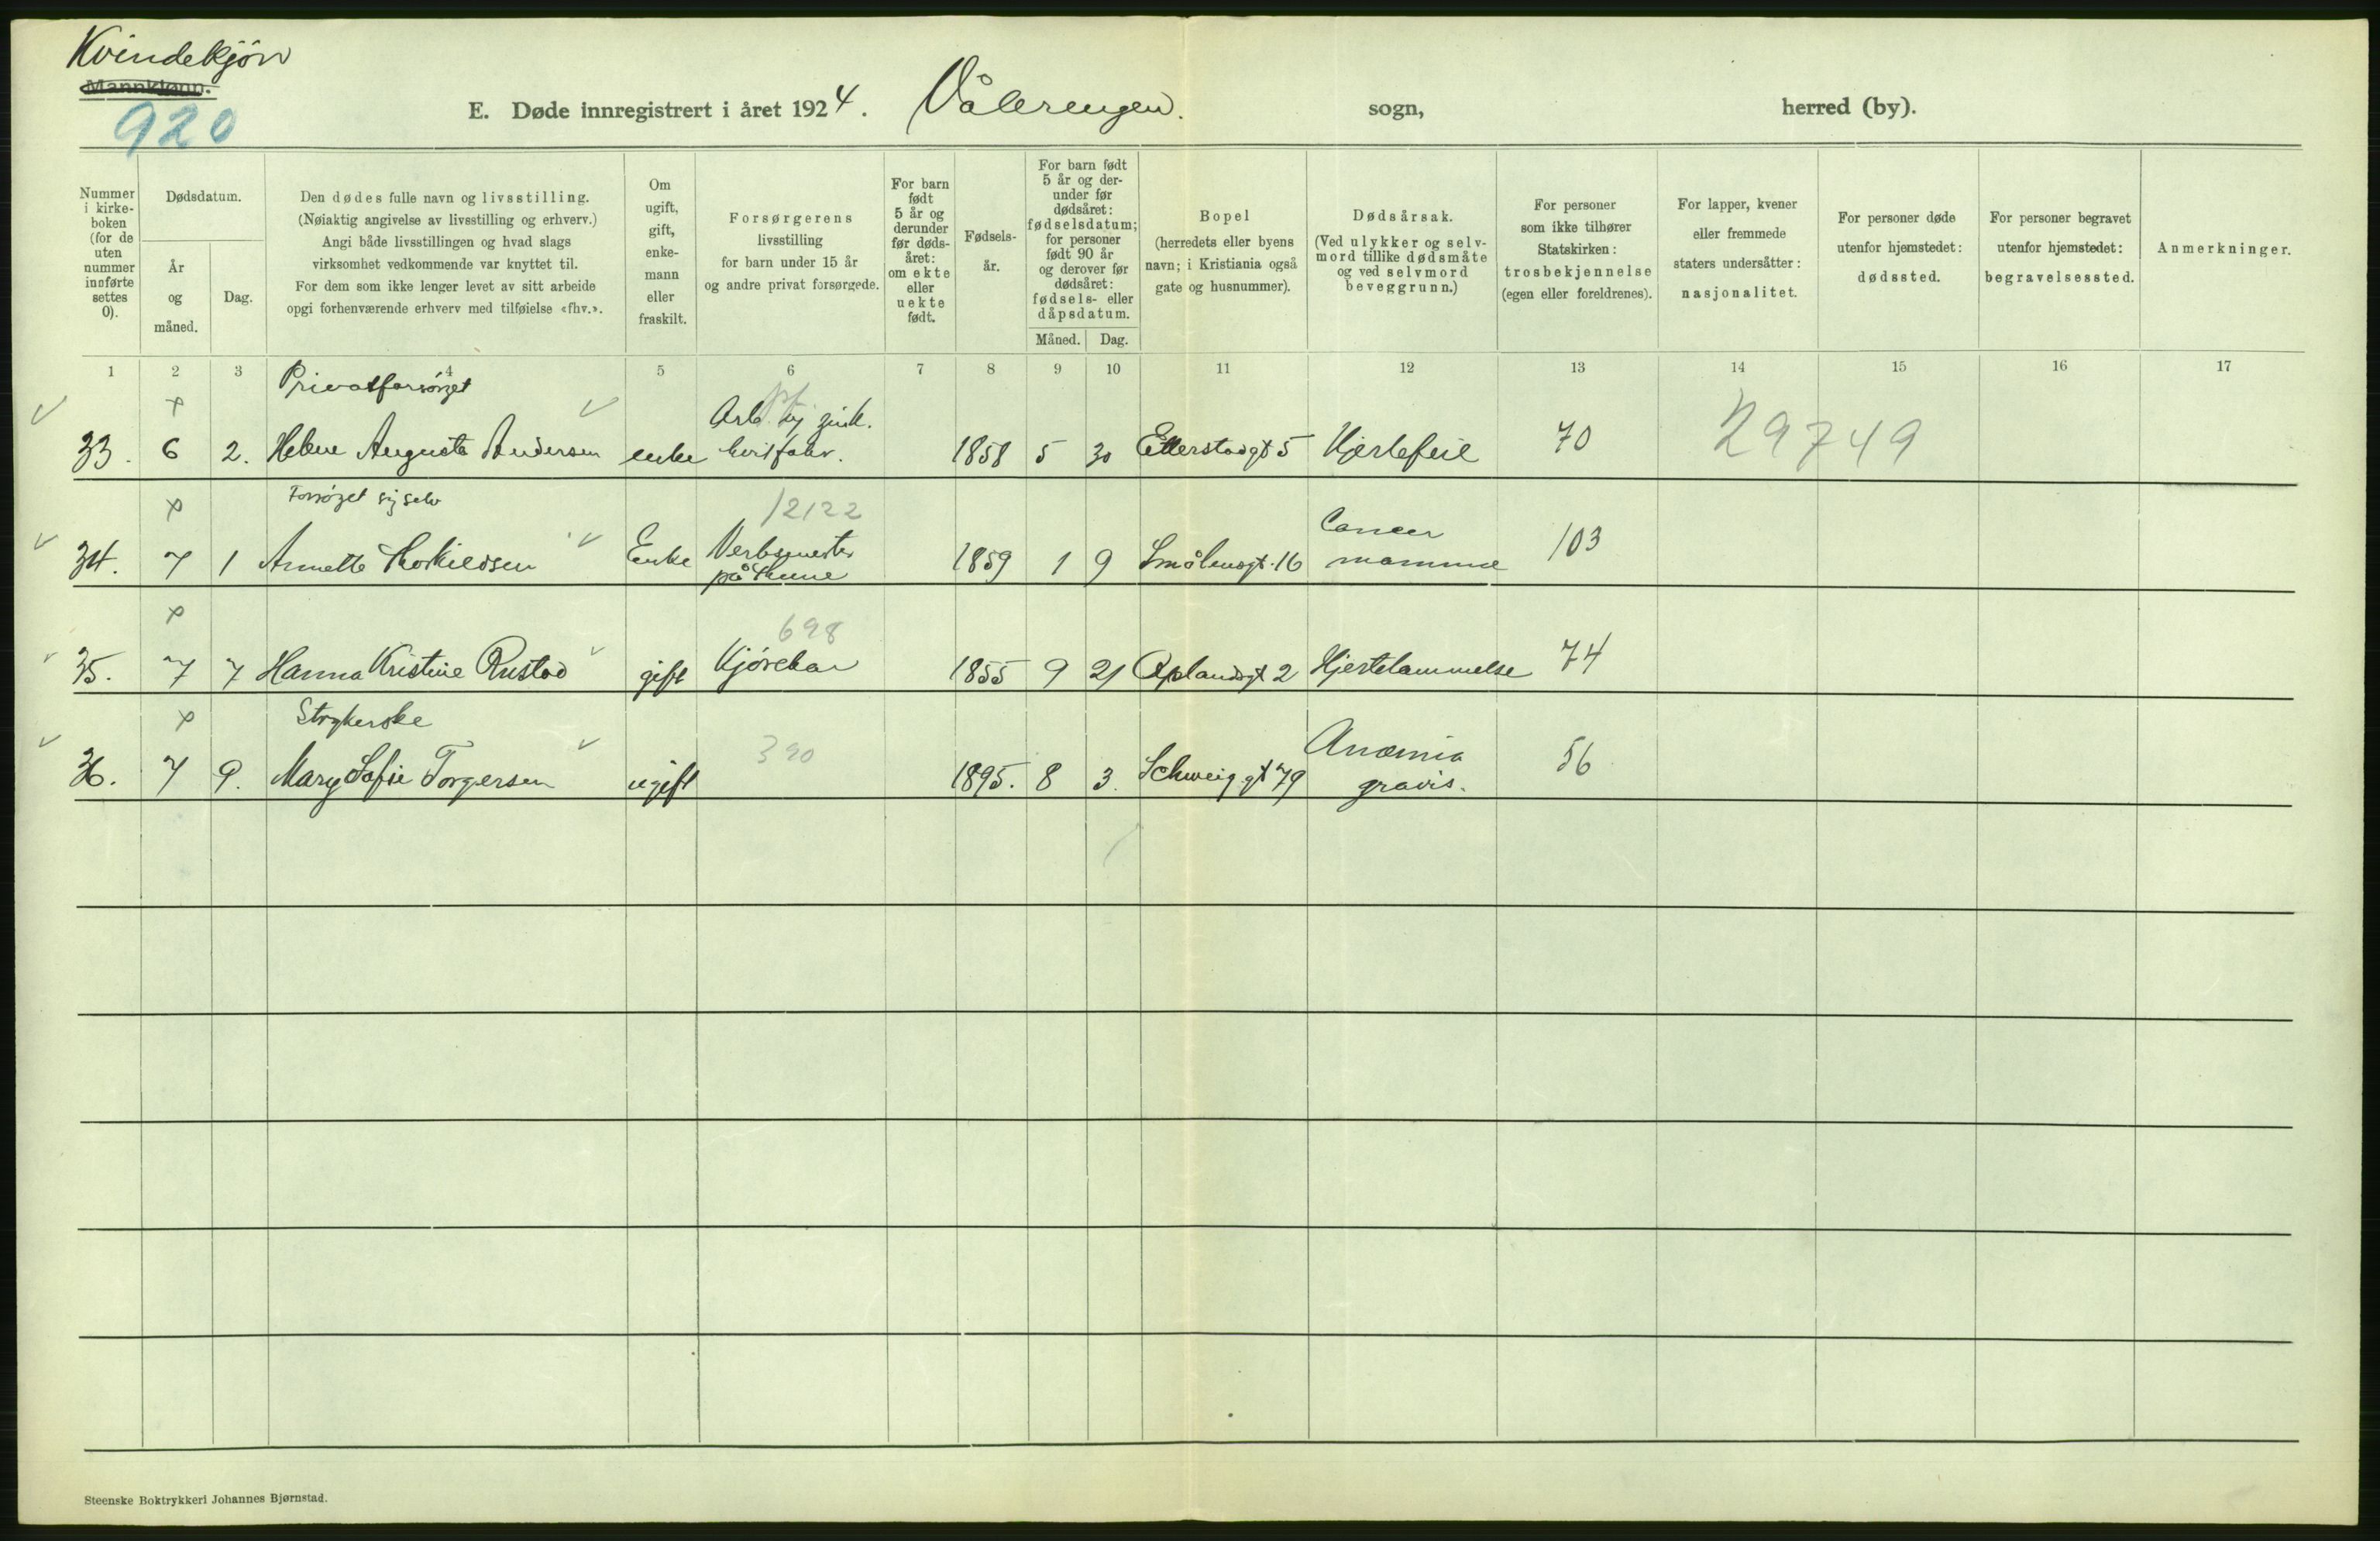 Kvindekjøn
Mannkjønn.
920
E. Døde innregistrert i året 1924. Vålerengen. sogn, herred (by).
Nummer i kirke-boken (for de uten nummer innførte settes 0).
Dødsdatum.
År og måned.
Dag.
Den dødes fulle navn og livsstilling.
(Nøiaktig angivelse av livsstilling og erhverv.)
Angi både livsstillingen og hvad slags
virksomhet vedkommende var knyttet til.
For dem som ikke lenger levet av sitt arbeide
opgi forhenværende erhverv med tilføielse «fhv.».
Om ugift, gift, enke-mann eller fraskilt.
Forsørgerens
livsstilling
for barn under 15 år
og andre privat forsørgede.
For barn født 5 år og derunder før døds-året: om ekte eller uekte født.
Fødsels-år.
For barn født 5 år og der-under før dødsåret: fødselsdatum; for personer født 90 år og derover før dødsåret: fødsels- eller dåpsdatum.
Måned. Dag.
Bopel
(herredets eller byens
navn; i Kristiania også
gate og husnummer).
Dødsårsak.
(Ved ulykker og selv-
mord tillike dødsmåte
og ved selvmord
beveggrunn.)
For personer
som ikke tilhører
Statskirken:
trosbekjennelse
(egen eller foreldrenes).
For lapper, kvener
eller fremmede
staters undersåtter:
nasjonalitet.
For personer døde
utenfor hjemstedet:
dødssted.
For personer begravet
utenfor hjemstedet:
begravelsessted.
Anmerkninger.
1 2 3 4 5 6 7 8 9 10 11 12 13 14 15 16 17
Privatforsørget
33. 6 2. Helene Augusta Andersen enke Arb. 1858 5 30 Etterstadgt 5 Hjertefeil 70 29749
Forsørget sig selv
12122
34. 7 1 Annette Thorkildsen Enke Verksmester på Thune 1859 1 9 Smålensgt. 16 Cancer mammae 103
698
35. 7 7 Hanna Kristine Rustad gift Kjørekar 1855 9 21 Oplandsgt 2 Hjertelammelse 74
Strykerske
390
36. 7 9. Mary Sofie Torgersen ugift 1895. 8 3. Schweig.gt 79 Anæmia gravis. 56
Steenske Boktrykkeri Johannes Bjørnstad.